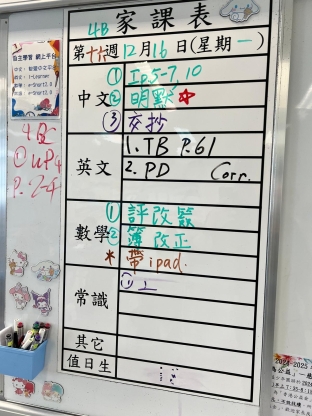 4B 家課表
第十六週12月16日(星期一)
中文
① Ip.5-7,10
② 明默☆
③ 交抄
英文
1. TB P.61
2. PD Corr.
數學
① 評改簽
② 簿改正
* 帶ipad.
常識
① 1
其它
值日生
自主學習 網上平台
4B
① UP4
P. 2-4
2024-2025